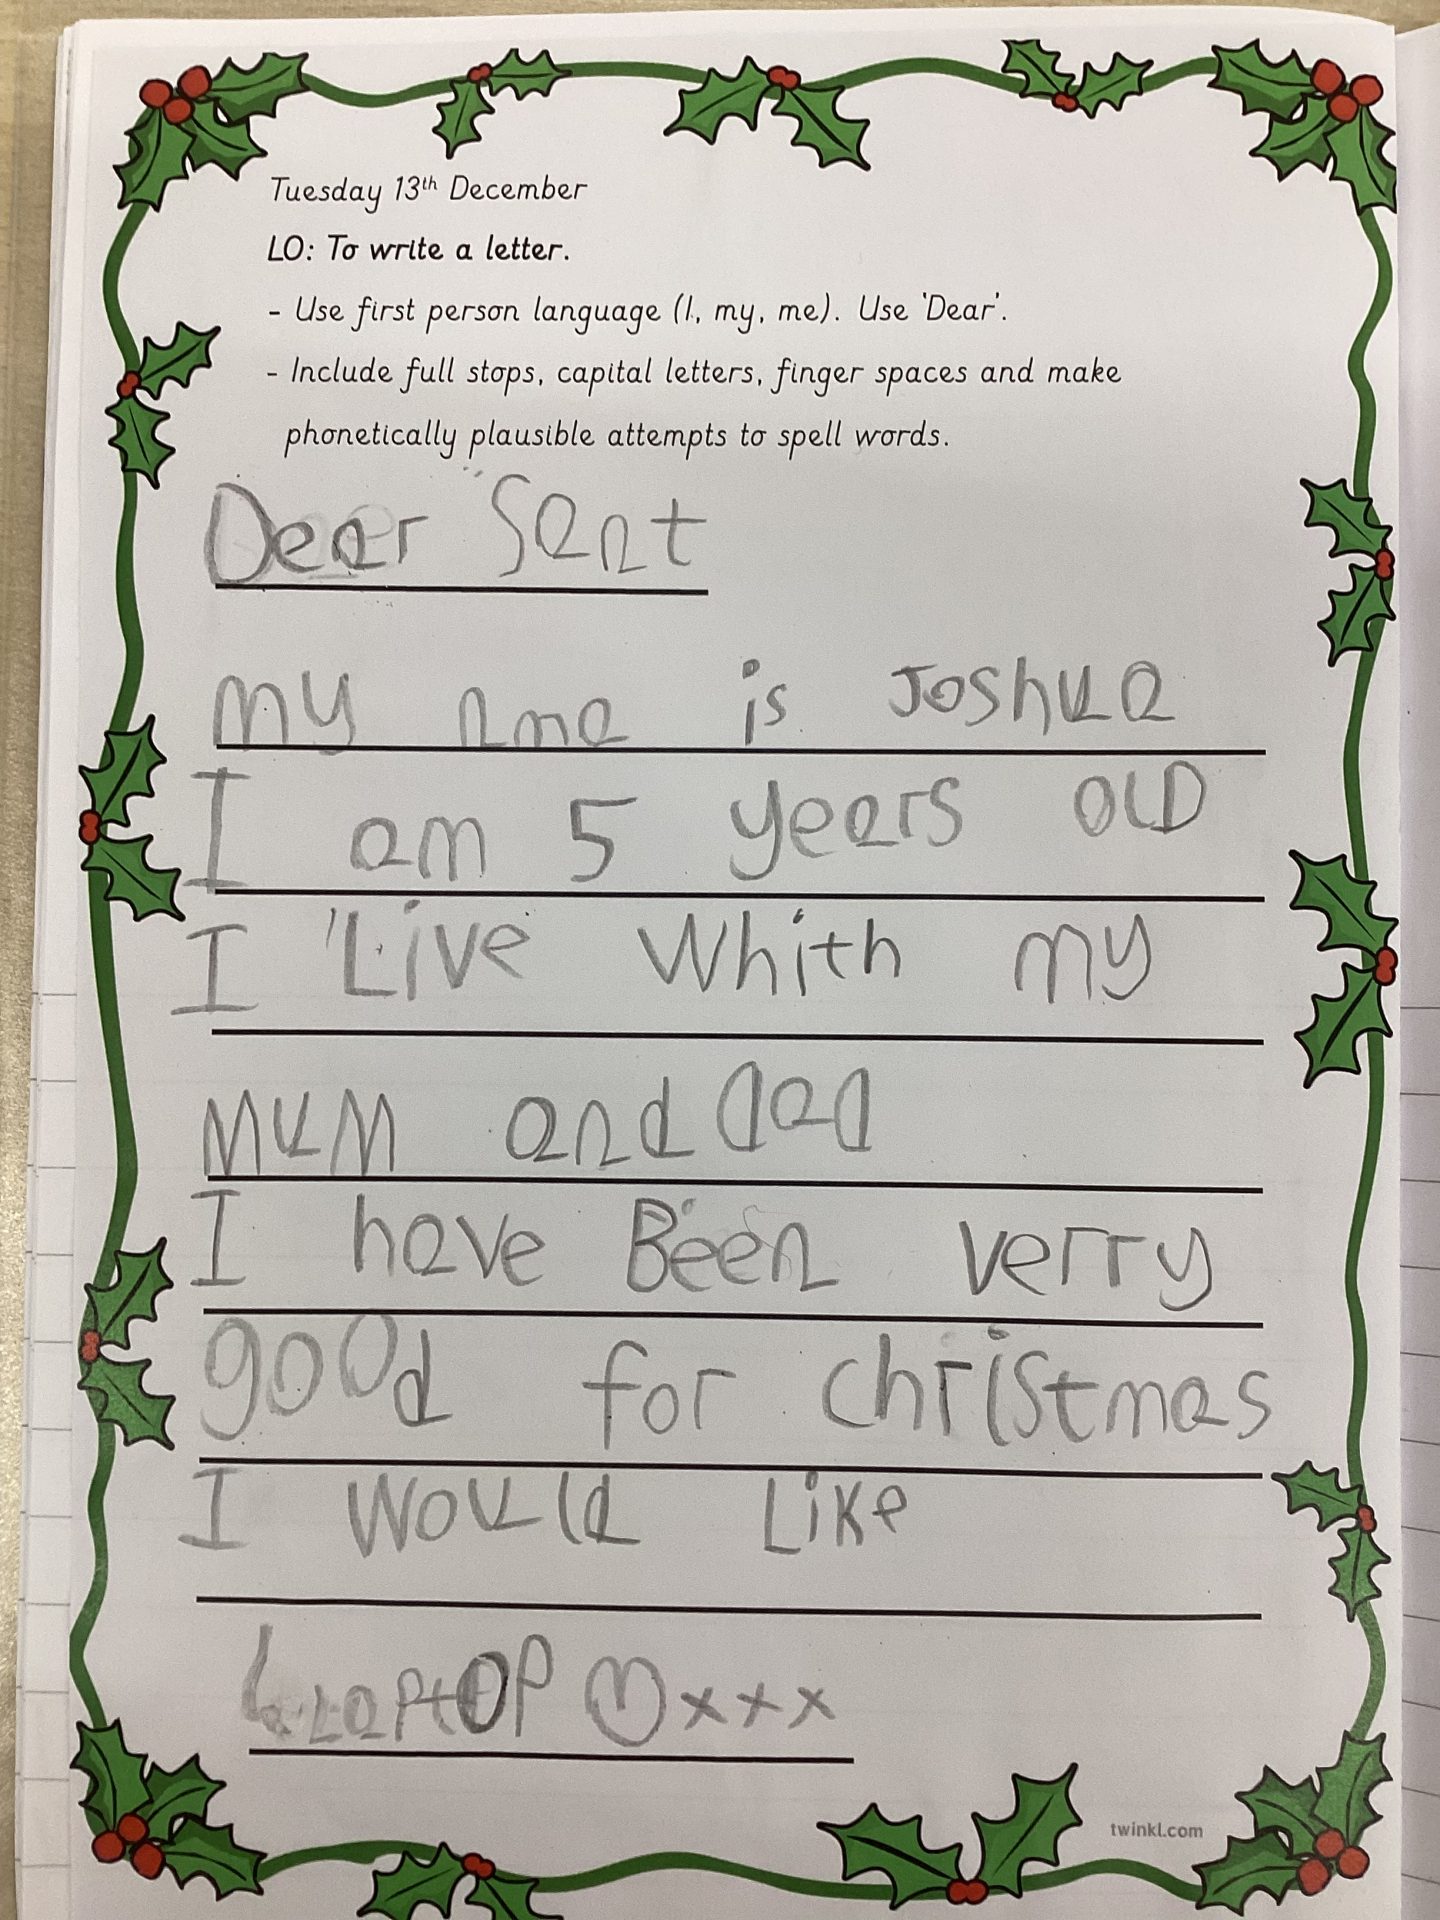 Tuesday 13th December
LO: To write a letter.
- Use first person language (I, my, me). Use 'Dear'.
- Include full stops, capital letters, finger spaces and make
phonetically plausible attempts to spell words.
Dear Sant
my nma is Joshua
I am 5 years OLD
I Live Whith my
MuM and dad
I have Been verry
good for christmas
I Would Like
LaptOP xxx
twinkl.com